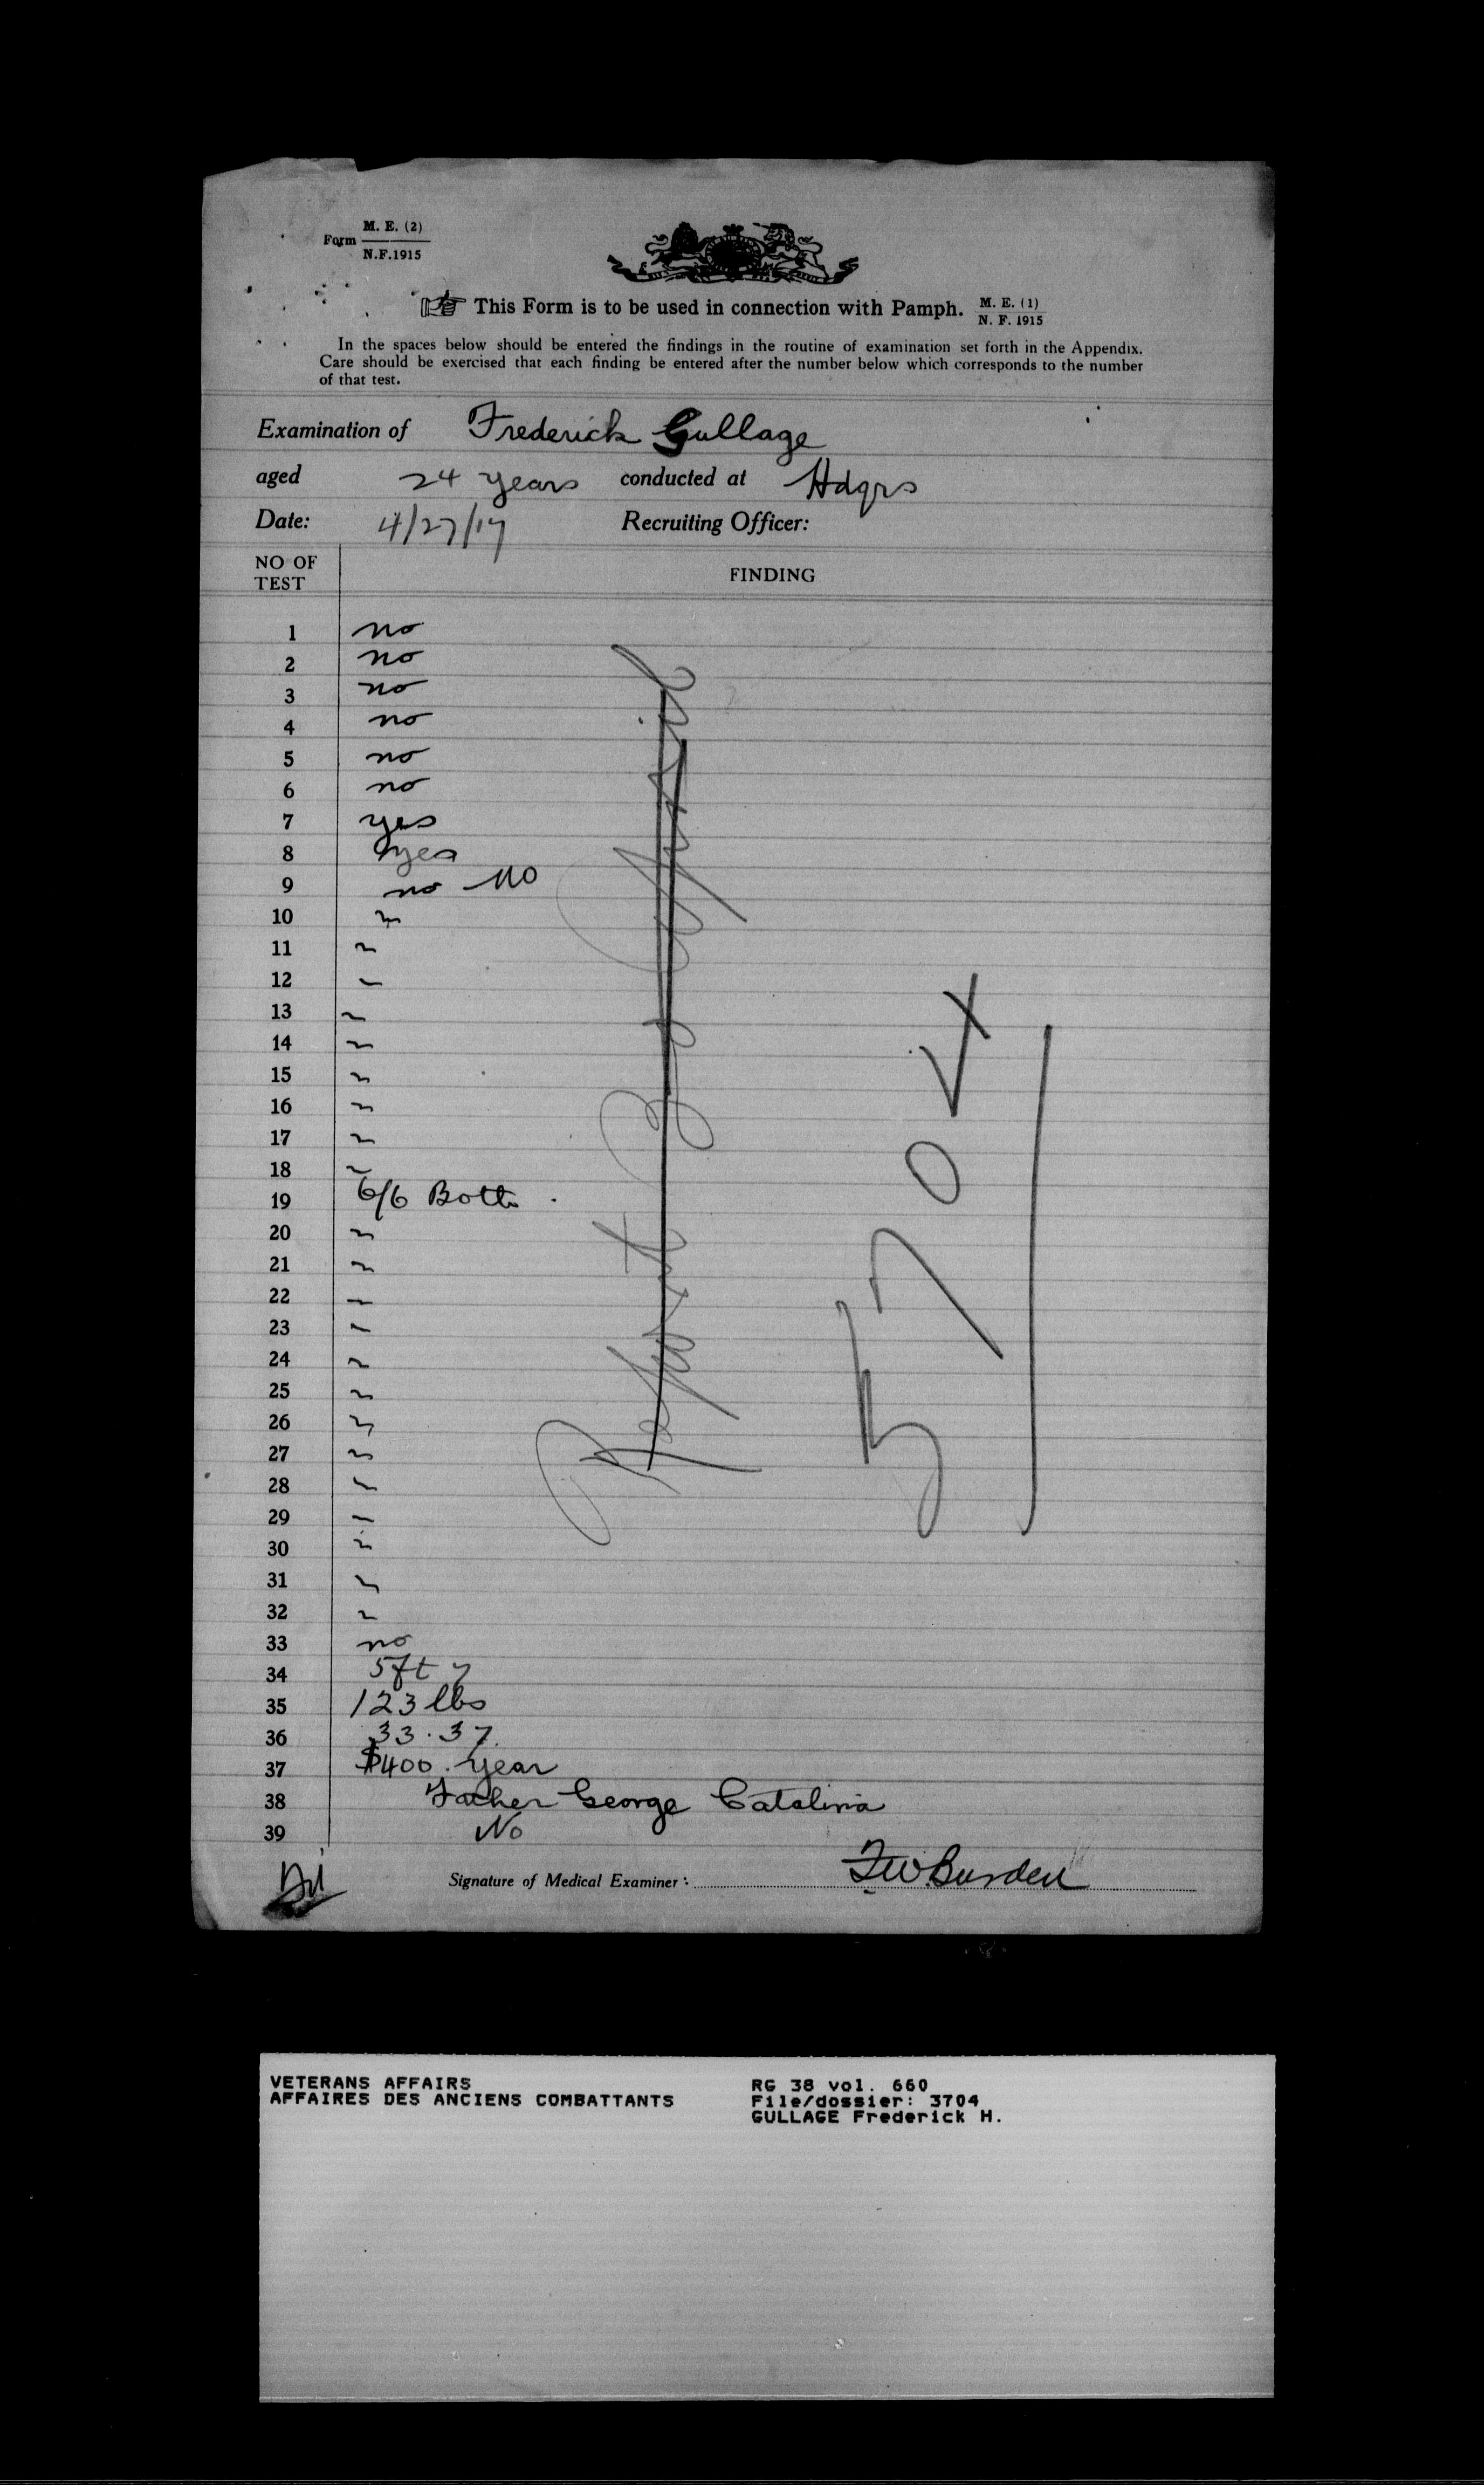 Form M. E. (2)
N.F.1915
This Form is to be used in connection with Pamph. M. E. (1)
N. F. 1915
In the spaces below should be entered the findings in the routine of examination set forth in the Appendix.
Care should be exercised that each finding be entered after the number below which corresponds to the number
of that test.
Examination of Frederick Gullage
aged 24 years conducted at Hdqrs
Date: 4/27/17 Recruiting Officer:
NO OF
TEST
FINDING
1 no
2 no
3 no
4 no
5 no
6 no
7 yes
8 yes
9 no no
10 ~
11 ~
12 ~
13 ~
14 ~
15 ~
16 ~
17 ~
18 ~
19 6/6 Both
20 ~
21 ~
22 ~
23 ~
24 ~
25 ~
26 ~
27 ~
28 ~
29 ~
30 ~
31 ~
32 ~
33 no
34 5ft 7
35 123 lbs
36 33.37
37 $400. year
38 Father George Catalina
39 No
Report 30 April
Signature of Medical Examiner: F W Burden
VETERANS AFFAIRS
AFFAIRES DES ANCIENS COMBATTANTS
RG 38 vol. 660
File/dossier: 3704
GULLAGE Frederick H.